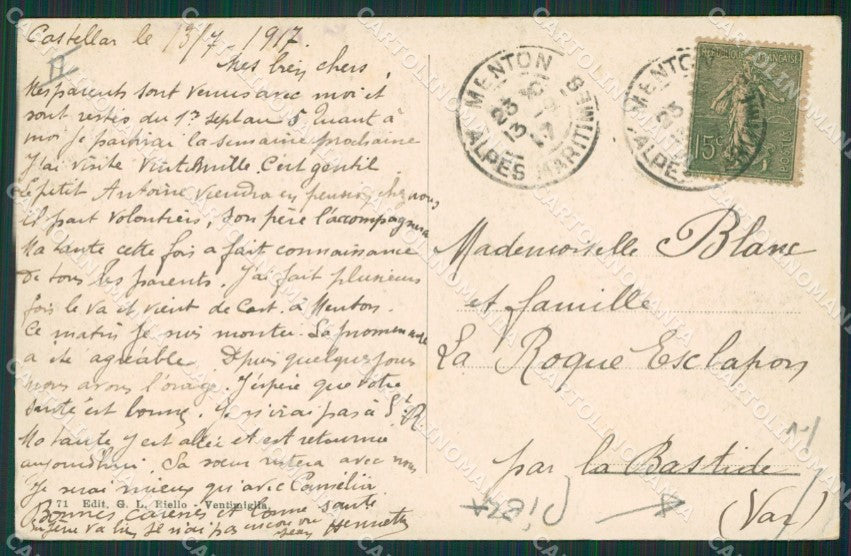 Castellar le 13/7 1917.
Mes bien chers,
Mes parents sont venus avec moi et
sont restés du 1er sept au 5 Quant à
moi je partirai la semaine prochaine
J'ai visité Vintimille C'est gentil
Le petit Antoine viendra en pension chez nous
il part volontiers, son père l'accompagnera
Ma tante cette fois a fait connaissance
de tous les parents. J'ai fait plusieurs
fois le va et vient de Cast. à Menton.
Ce matin je suis montée. La promenade
a été agréable. Depuis quelques jours
nous avons l'orage. J'espère que votre
santé est bonne. Je n'irai pas à St. R
Ma tante y est allée et est retournée
aujourdhui. Sa soeur restera avec nous
Je serai mieux qu'avec
71 Edit. G. L. Eiello - Ventimiglia
Bonnes caresses et bonne santé
va je n'ai pas encore vu
Jean
MENTON
23
13
7
17
ALPES MARITIMES
MENTON
23
13
ALPES MARITIMES
15c
POSTES
Mademoiselle Blanc
et famille
La Roque Esclapon
par la Bastide
(Var)
CARTOLINOMANIA